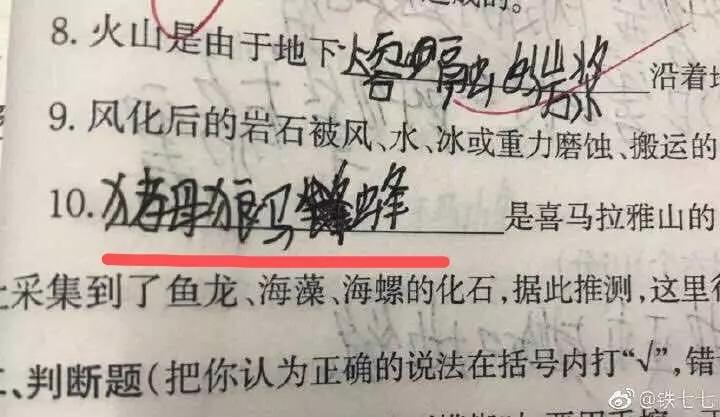 成的。
8. 火山是由于地下熔融的岩浆沿着地
9. 风化后的岩石被风、水、冰或重力磨蚀、搬运的
10. 猪母狼马蜂是喜马拉雅山的
采集到了鱼龙、海藻、海螺的化石，据此推测，这里
、判断题（把你认为正确的说法在括号内打“√”，错
@铁七七